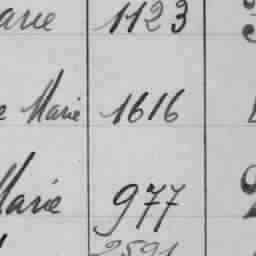 arie 1123
e Marie 1616
Marie 977
2591